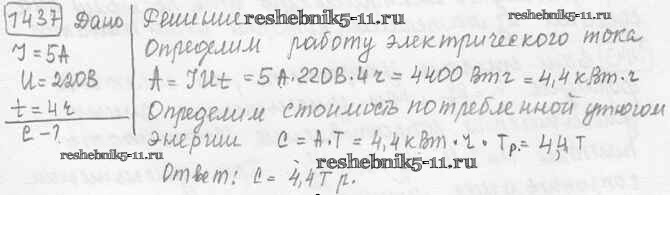 1437 Дано Решение reshebnik5-11.ru reshebnik5-11.ru
J = 5A Определим работу электрического тока
U = 220В A = JUt = 5A·220В·4ч = 4400 Вт ч = 4,4 кВт·ч
t = 4ч Определим стоимость потребленной утюгом
C - ? энергии C = A·T = 4,4 кВт·ч · Tр. = 4,4 T
reshebnik5-11.ru reshebnik5-11.ru
Ответ: C = 4,4T р.
reshebnik5-11.ru